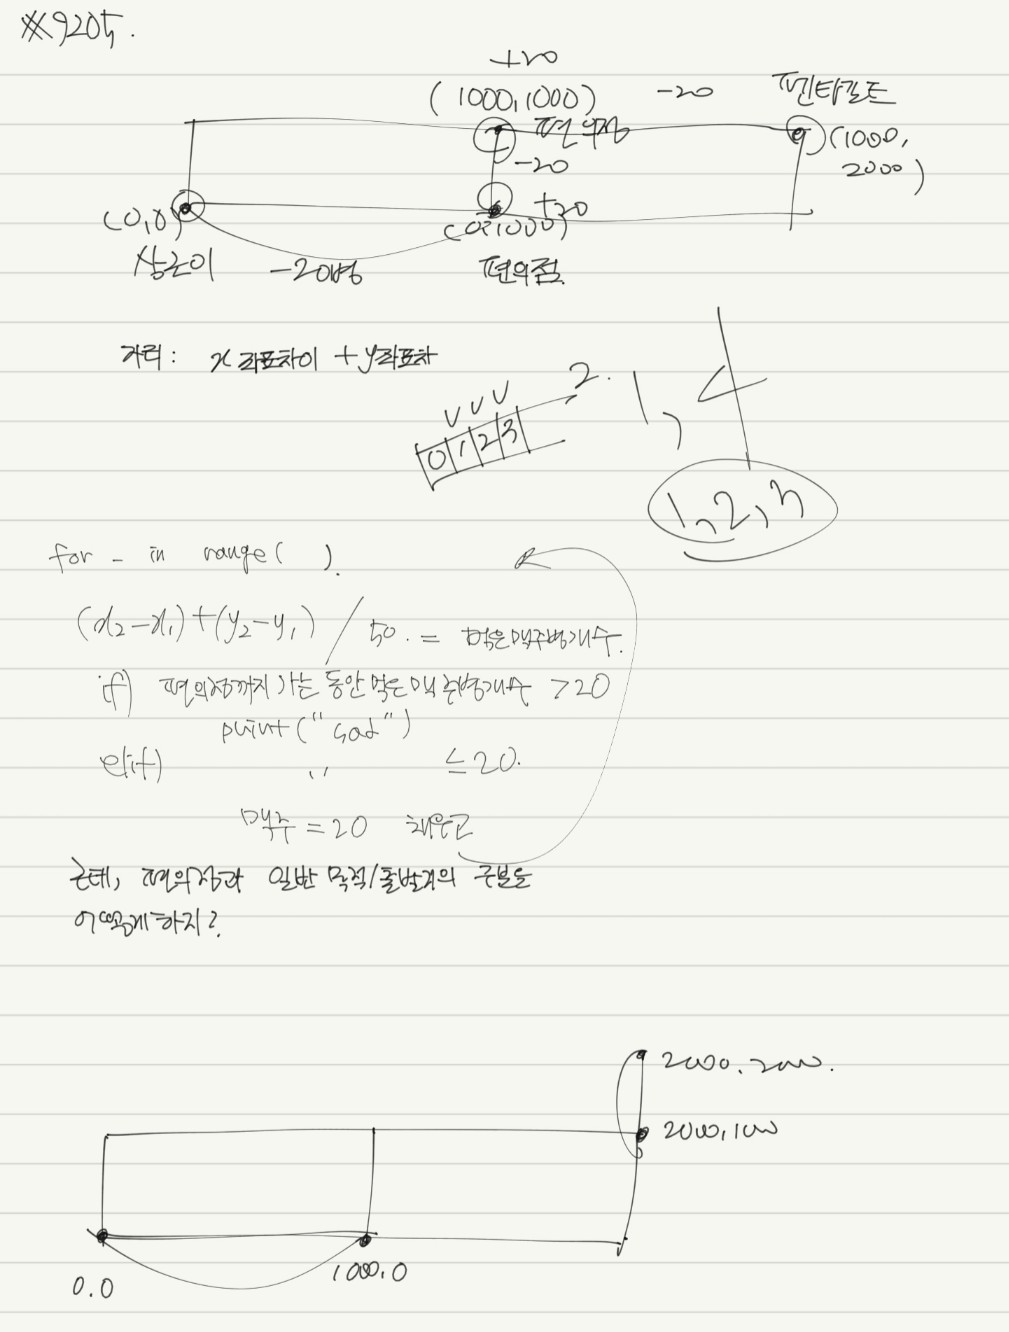 ※9205.
+20
(1000,1000)
-20
펜타포트
편의점
(1000,
2000)
-20
(0,0)
+20
(0,1000)
상근이
-20병
편의점
거리: x좌표차이 + y좌표차
V V V
2.
1, 4
0 1 2 3
1, 2, 3
for _ in range( ).
(x₂-x₁)+(y₂-y₁) / 50. = 먹은맥주병개수.
if) 편의점까지 가는 동안 먹은 맥주병개수 >20
print("sad")
elif) " ≤20.
맥주 =20 채우고
근데, 편의점과 일반 목적/출발지의 구분을
어떻게하지?
2000.2000.
2000,1000
1000,0
0.0